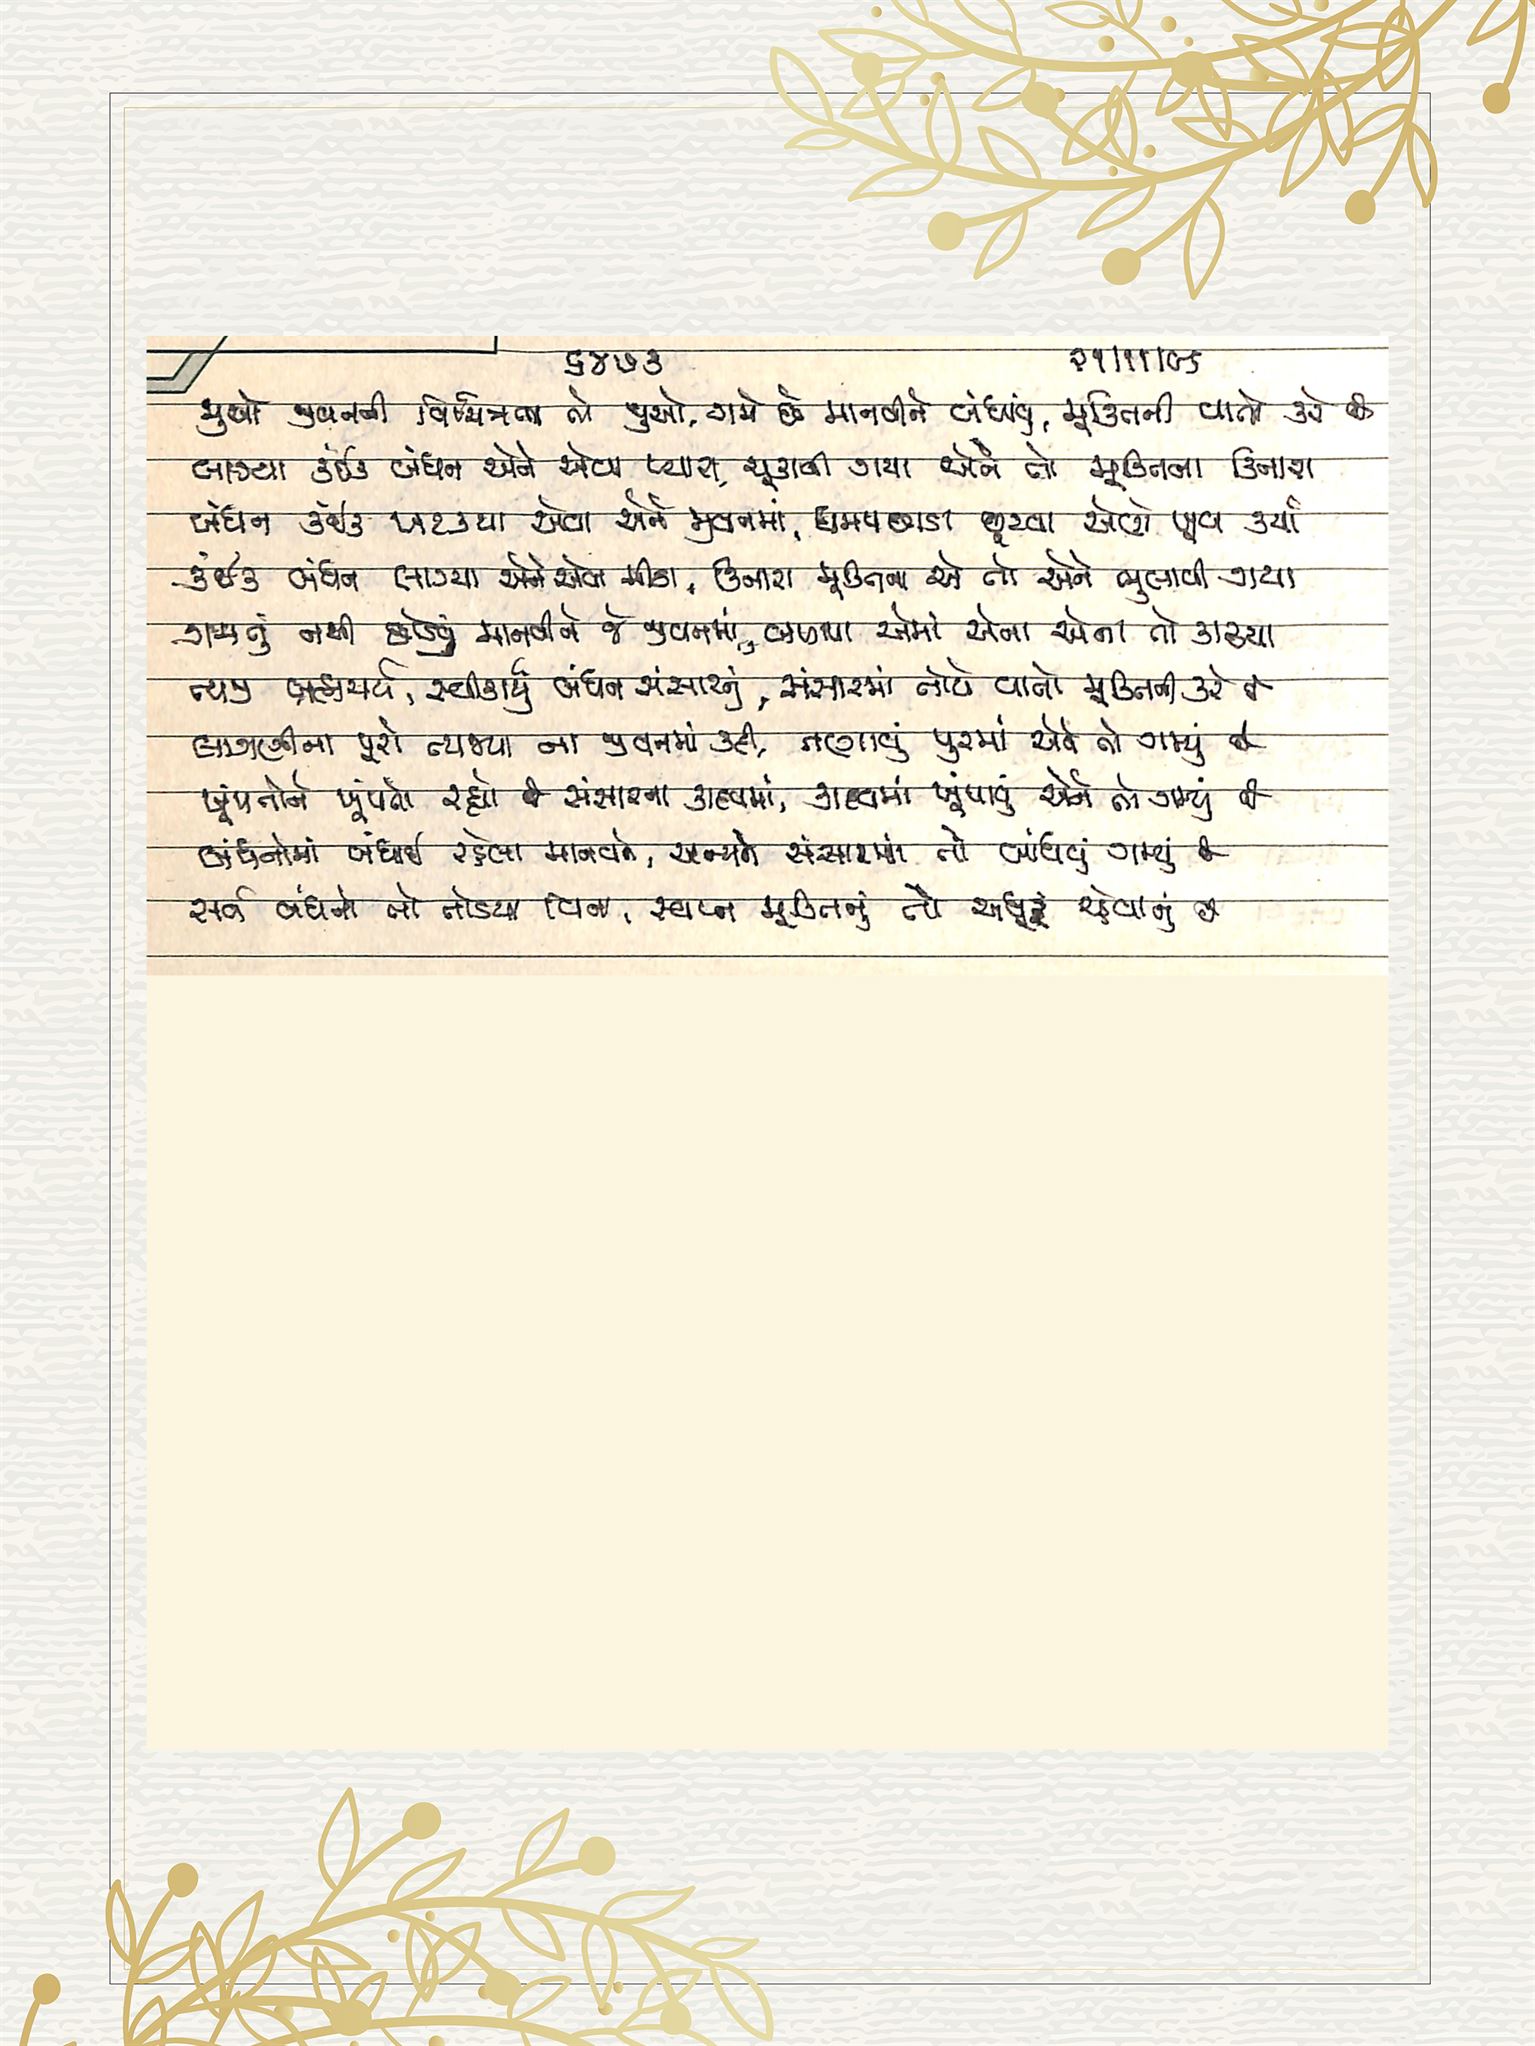 ૬૪૭૩ ૨૧/૧૧/૦૬
જુઓ જીવનની વિચિત્રતા તો જુઓ, ગમે છે માનવીને બંધાવું, મૂક્તિની વાતો કરે છે
લાગ્યા કંઈક બંધન એને એવા પ્યારા, ચૂકાવી ગયા એને તો મૂક્તિના કિનારા
બંધન કંઈક ખટક્યા એવા એને જીવનમાં, ધમપછાડા છૂટવા એણે ખૂબ કર્યા
કંઈક બંધન લાગ્યા એને એવા મીઠા, કિનારા મૂક્તિના એ તો એને ભુલાવી ગયા
ગમતું નથી છોડવું માનવીને જે જીવનમાં, બળાપા એમાં એના એના તો કાઢ્યા
ત્યજી બ્રહ્મચર્ય, સ્વીકાર્યું બંધન સંસારનું, સંસારમાં તોયે વાતો મૂક્તિની કરે છે
લાગણીના પૂરો ત્યજ્યા ના જીવનમાં કદી, તણાવું પુરમાં એને તો ગમ્યું છે
ખૂંપતોને ખૂંપતો રહ્યો છે સંસારના કાદવમાં, કાદવમાં ખૂંપાવું એને તો ગમ્યું છે
બંધનોમાં બંધાઈ રહેલા માનવને, અન્યને સંસારમાં તો બાંધવું ગમ્યું છે
સર્વ બંધનો તો તોડયા વિના, સ્વપ્ન મૂક્તિનું તો અધૂરૂં રહેવાનું છે